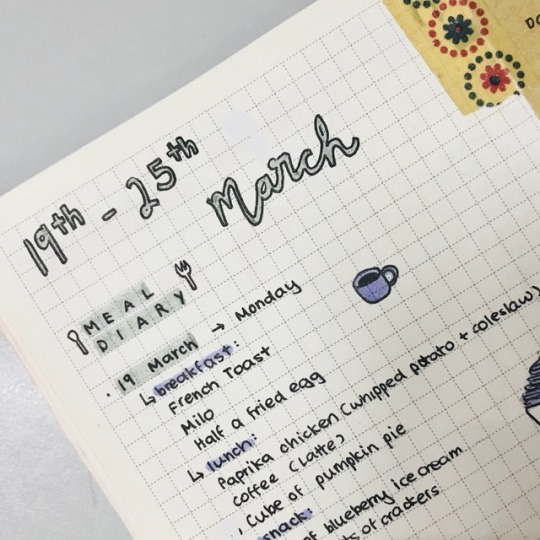 19th - 25th
March
MEAL
DIARY
19 March → Monday
↳ breakfast:
French Toast
Milo
Half a fried egg
↳ lunch:
Paprika chicken (whipped potato + coleslaw)
Coffee (Latte)
Cube of pumpkin pie
snack:
of blueberry ice cream
of crackers